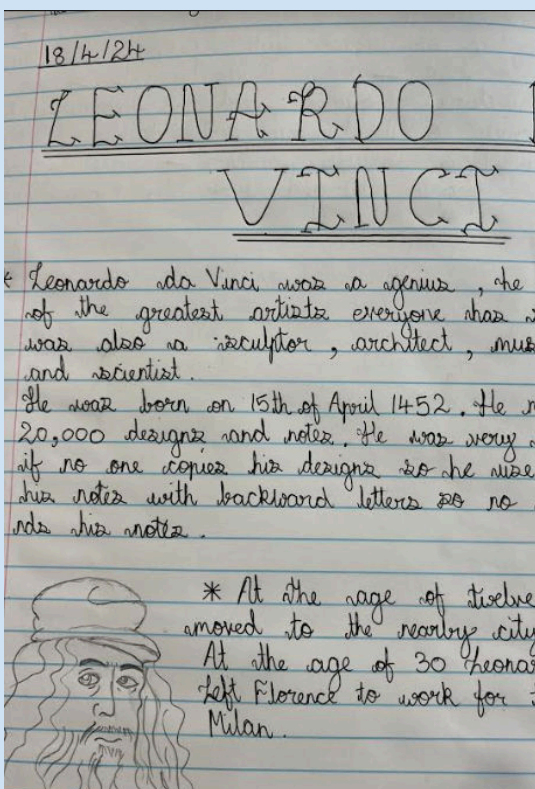 18/4/24
LEONARDO
VINCI
* Leonardo da Vinci was a genius, he
of the greatest artists everyone has
was also a sculptor, architect,
and scientist.
He was born on 15th of April 1452. He
20,000 designs and notes. He was very
if no one copies his designs so he
his notes with backward letters so no
his notes.
* At the age of twelve
moved to the nearby city
At the age of 30
left Florence to work for
Milan.